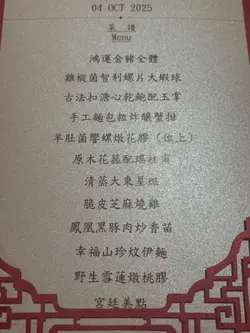 04 OCT 2025
菜譜
Menu
鴻運金豬全體
雞樅菌智利螺片大蝦球
古法扣溏心乾鮑配玉掌
手工麵包粒炸釀蟹拑
羊肚菌響螺燉花膠（位上）
原木花菇配瑤柱甫
清蒸大東星斑
脆皮芝麻燒雞
鳳凰黑豚肉炒香苗
幸福山珍炆伊麵
野生雪蓮燉桃膠
宮廷美點